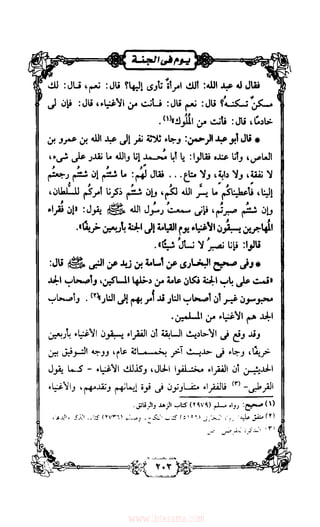 يوم فى الجنة
فقال له عبد الله: ألك امرأةٌ تأوى إليها؟ قال: نعم، قال: لك
مسكنٌ تسكنه؟ قال نعم: قال: فأنت من الأغنياء، قال: فإن لى
خادمًا، قال: فأنت من الملوك»(١).
* قال أبو عبد الرحمن: وجاء ثلاثة نفر إلى عبد الله بن عمرو بن
العاص، وأنا عنده فقالوا: يا أبا محمد إنا والله ما نقدر على شىء،
لا نفقة، ولا دابة، ولا متاع... فقال لهم: ما شئتم إن شئتم رجعتم
إلينا، فأعطيناكم ما يسَّر الله لكم، وإن شئتم ذكرنا أمركم للسلطان،
وإن شئتم صبرتم، فإنى سمعت رسول الله ﷺ يقول: «إن فقراء
المهاجرين يسبقون الأغنياء يوم القيامة إلى الجنة بأربعين خريفًا».
قالوا: فإنا نصبر لا نسأل شيئًا».
* وفى صحيح البخارى عن أسامة بن زيد عن النبى ﷺ قال:
«قمت على باب الجنة فكان عامة من دخلها المساكين، وأصحاب الجد
محبوسون غير أن أصحاب النار قد أمر بهم إلى النار»(٢). وأصحاب
الجد هم الأغنياء من المسلمين.
وقد وقع فى الأحاديث السابقة أن الفقراء يسبقون الأغنياء بأربعين
خريفًا، وجاء فى حديث آخر بخمسمائة عام، ووجه التوفيق بين
الحديثين أن الفقراء مختلفوا الحال، وكذلك الأغنياء - كما يقول
القرطبى-(٣) فالفقراء متفاوتون فى قوة إيمانهم وتقدمهم، والأغنياء
(١) صحيح: رواه مسلم (٢٩٧٩) كتاب الزهد والرقائق.
(٢) متفق عليه: رواه البخارى (٥١٩٦) كتاب النكاح، ومسلم (٢٧٣٦) كتاب الذكر والدعاء.
(٣) التذكرة للقرطبى ص
٢٠٣